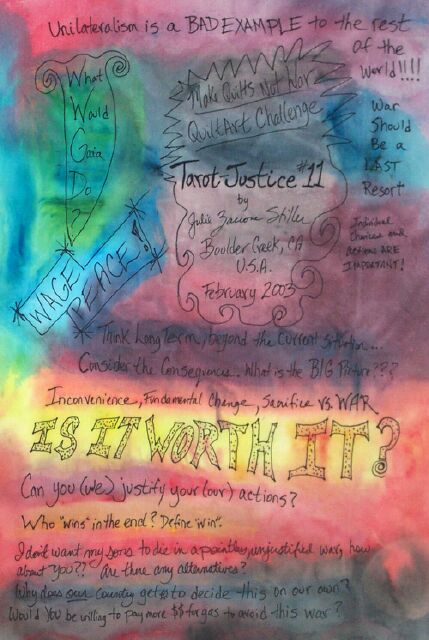 Unilateralism is a BAD EXAMPLE to the rest
of the
World!!!!
What
Would
Gaia
Do
?
Make Quilts Not War
QuiltArt Challenge
Tarot-Justice #11
by
Julie Zaccone Stiller
Boulder Creek, CA
U.S.A.
February 2003
War
Should
Be a
LAST
Resort
Individual
choices and
actions ARE
IMPORTANT!
WAGE
PEACE!
Think Long Term, beyond the current situation...
Consider the Consequences.. What is the BIG Picture???
Inconvenience, Fundamental Change, Sacrifice vs. WAR
IS IT WORTH IT?
Can you (we) justify your (our) actions?
Who "wins" in the end? Define "win".
I don't want my sons to die in a pointless, unjustified war, how
about you?? Are there any alternatives?
Why does our country get to decide this on our own?
Would You be willing to pay more $$ for gas to avoid this war?